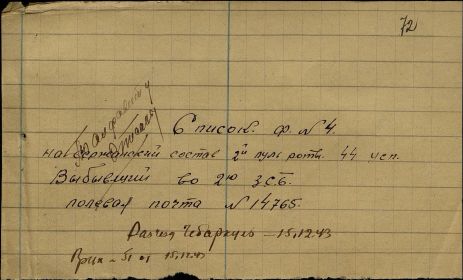 72
По алфавиту
Список. ф. №4.
на сержанский состав 2й пуль роты. 44 усп.
Выбывший во 2ю З.С.Б.
полевая почта №14765.
Разъезд Чебаркуль – 15.12.43
15.12.43